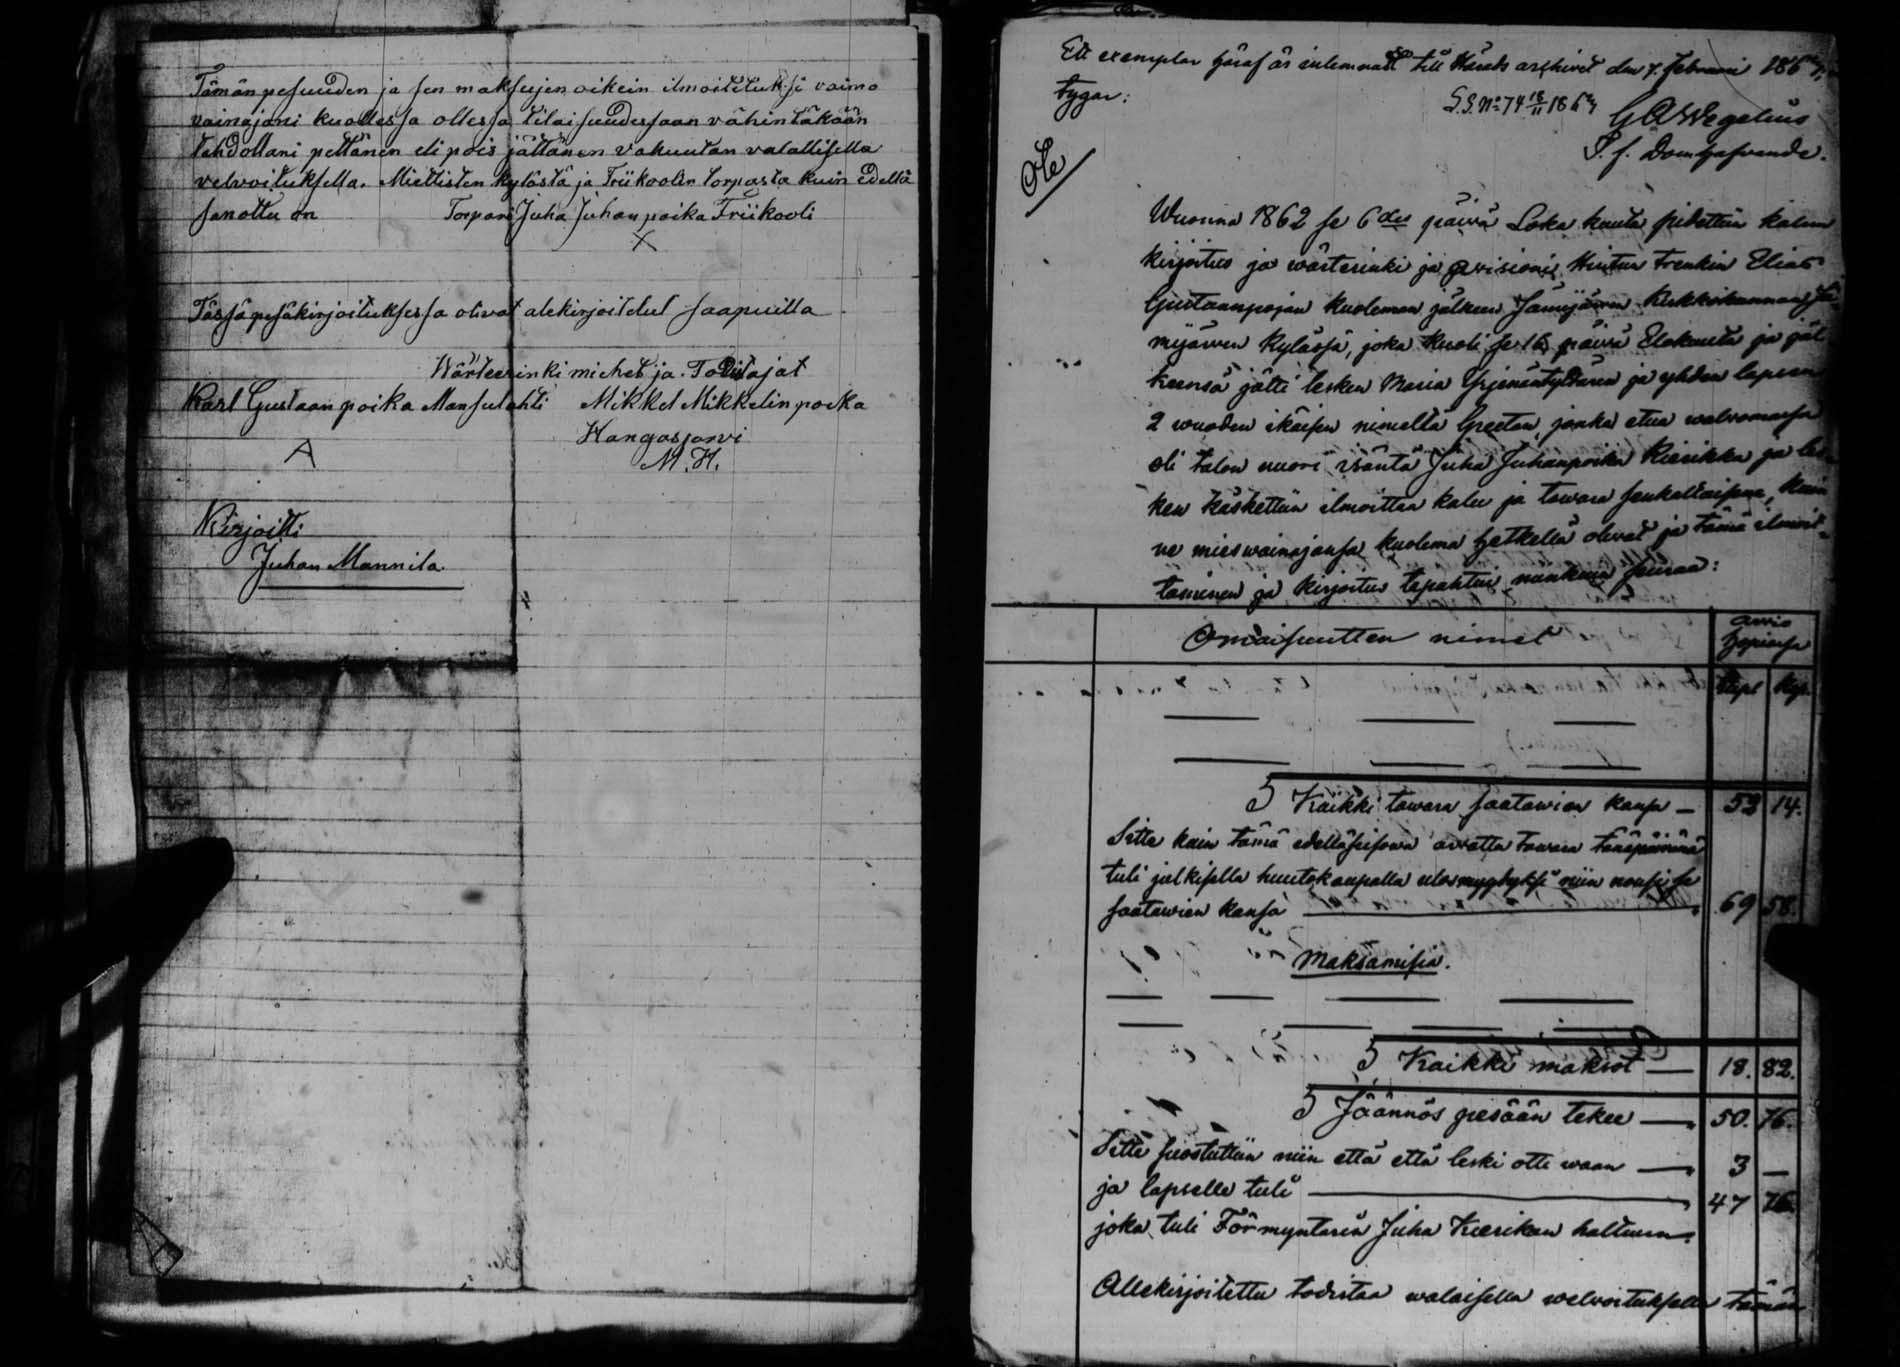 Tämän pesuuden ja sen maksujen oikein ilmoitetuksi vaimo
vainajani kuollessa ollessa tilaisuudessaan vähintäkään
tahdollani pettänen eli pois jättänen vakuutan valallisella
velvoituksella. Miettisten kylästä ja Friikoolin torpasta kuin edellä
sanottu on Torpari Juha Juhan poika Friikooli
X
Tässä pesäkirjoituksessa olivat alekirjoitelut saapuilla
Wärteerinki miehet ja Todistajat
Karl Gustaan poika Mansulahti Mikkel Mikkelin poika
A Hangasjarvi
M. H.
Kirjoitti
Juhan Mannila
Ett exemplar häraf är inlemnadt till Härads arkivet den 7 Februari 186
tygar:
S.S. No 74 G A Wegelius
P. f. Domhafvande.
Wuonna 1862 se 6 des päivä Loka kuuta pidettiin kalun
kirjoitus ja wärteerinki ja Elias
Gustaanpojan kuoleman jälkeen Jämijärven Kirkkokunnan Jä-
mijärven kylässä, joka kuoli se 16 päivä Elokuuta ja jäl
keensä jätti lesken Maria Yrjänäntyttären ja yhden lapsen
2 wuoden ikäisen nimeltä Greeta, jonka etua walvomassa
oli talon nuori isäntä Juha Juhanpoika Kierikka ja les-
ken käskettiin ilmoittaa kalu ja tawara senkaltaisena, kuin
ne mieswainajansa kuolema hetkellä olivat ja tämä ilmoit-
taminen ja kirjoitus tapahtui niinkuin seuraa:
Omaisuutten nimet arvio
hopiassa
Rupl Kop.
S Kaikki tawara saatawien kansa — 53 14.
Sitte kuin tämä edelläseisowa arvattu tawara tänäpäivänä
tuli julkisella huutokaupalla ulosmyydyksi niin nousi se
saatawien kansa — 69 58.
Maksamisia.
S Kaikki maksot — 18. 82.
S Jäännös pesään tekee — 50. 76.
Sitte suostuttiin niin että että leski otti waan — 3 —
ja lapselle tuli — 47 76.
joka tuli Förmyntärin Juha Kierikan haltuun.
Allekirjoitettu todistaa walaisella welvoituksella tämän